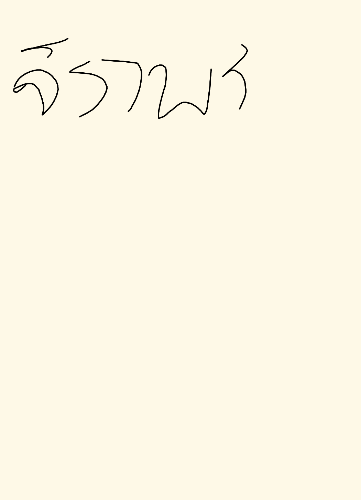 จิราพร